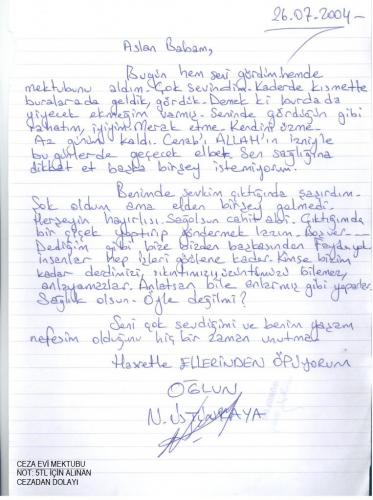 26.07.2004-
Aslan Babam,
Bugün hem seni gördüm hemde
mektubunu aldım. Çok sevindim. Kaderde kısmette
buralarada geldik, gördük. Demek ki burdada
yiyecek ekmeğim varmış. Seninde gördüğün gibi
rahatım, iyiyim. Merak etme. Kendini üzme.
Az günüm kaldı. Cenab'ı ALLAH'ın izniyle
bu günlerde geçecek elbet. Sen sağlığına
dikkat et başka birşey istemiyorum.
Benimde sevkim çıktığında şaşırdım.
Şok oldum ama elden birşey gelmedi.
Herşeyin hayırlısı. Sağolsun cahit abi. Çıktığımda
bir çiçek yaptırıp göndermek lazım. Boşver
Dediğim gibi bize bizden başkasından fayda yok
insanlar hep işleri görülene kadar. Kimse bizim
kadar derdimizi, sıkıntımızı üzüntümüzü bilemez,
anlayamazlar. Anlatsan bile anlarmış gibi yaparlar.
Sağlık olsun. Öyle değilmi?
Seni çok sevdiğimi ve benim yaşam
nefesim olduğunu hiç bir zaman unutma!
Hasretle ELLERİNDEN ÖPÜYORUM
OĞLUN
N. ÜSTÜNKAYA
CEZA EVİ MEKTUBU
NOT: 5TL İÇİN ALINAN
CEZADAN DOLAYI